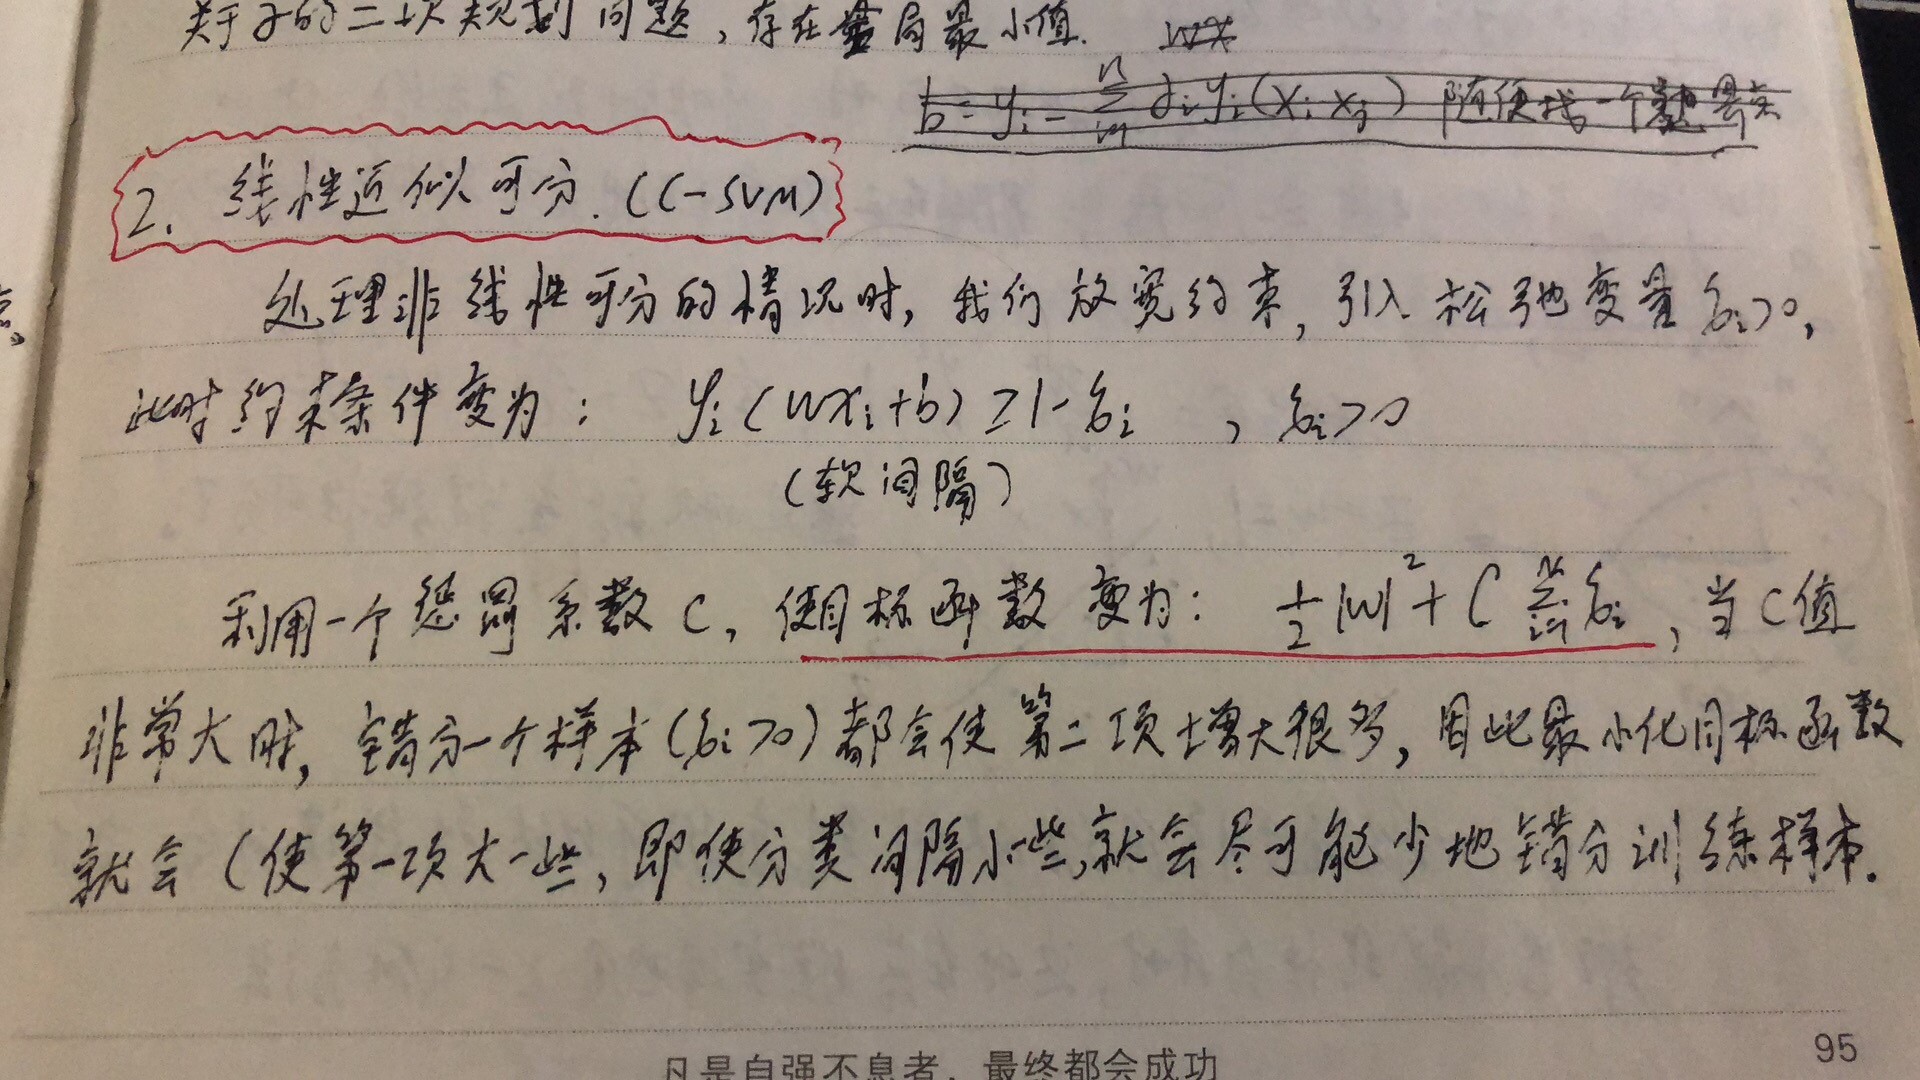 关于α的二次规划问题，存在全局最小值. wx
b=yi-∑αiyi(xi xj) 随便找一个
2. 线性近似可分.（C-SVM）
处理非线性可分的情况时，我们放宽约束，引入松弛变量ξi>0，
此时约束条件变为：yi(wxi+b)≥1-ξi ，ξi>0
（软间隔）
利用一个惩罚系数C，使目标函数变为：1/2|w|²+C∑ξi，当C值
非常大时，错分一个样本（ξi>0）都会使第二项增大很多，因此最小化目标函数
就会（使第一项大一些，即使分类间隔小些，就会尽可能少地错分训练样本.
凡是自强不息者，最终都会成功
95